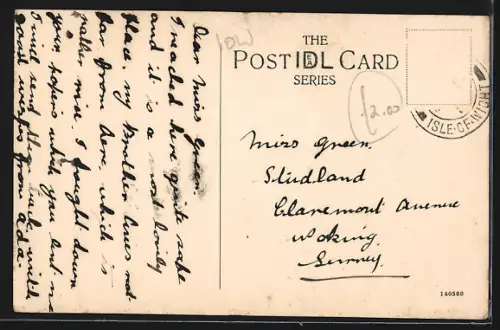 Dear Miss Green
I reached here quite safe
and it is a most lovely
place, my Brother lives not
far from here, which is
rather nice. I brought down
your papers which you lent me
I will send them back with
good wishes from Ada.
IOW
THE
POST IDL CARD
SERIES
£2.00
ISLE.OF.WIGHT
Miss Green.
Studland
Claremont Avenue
Woking.
Surrey.
140560